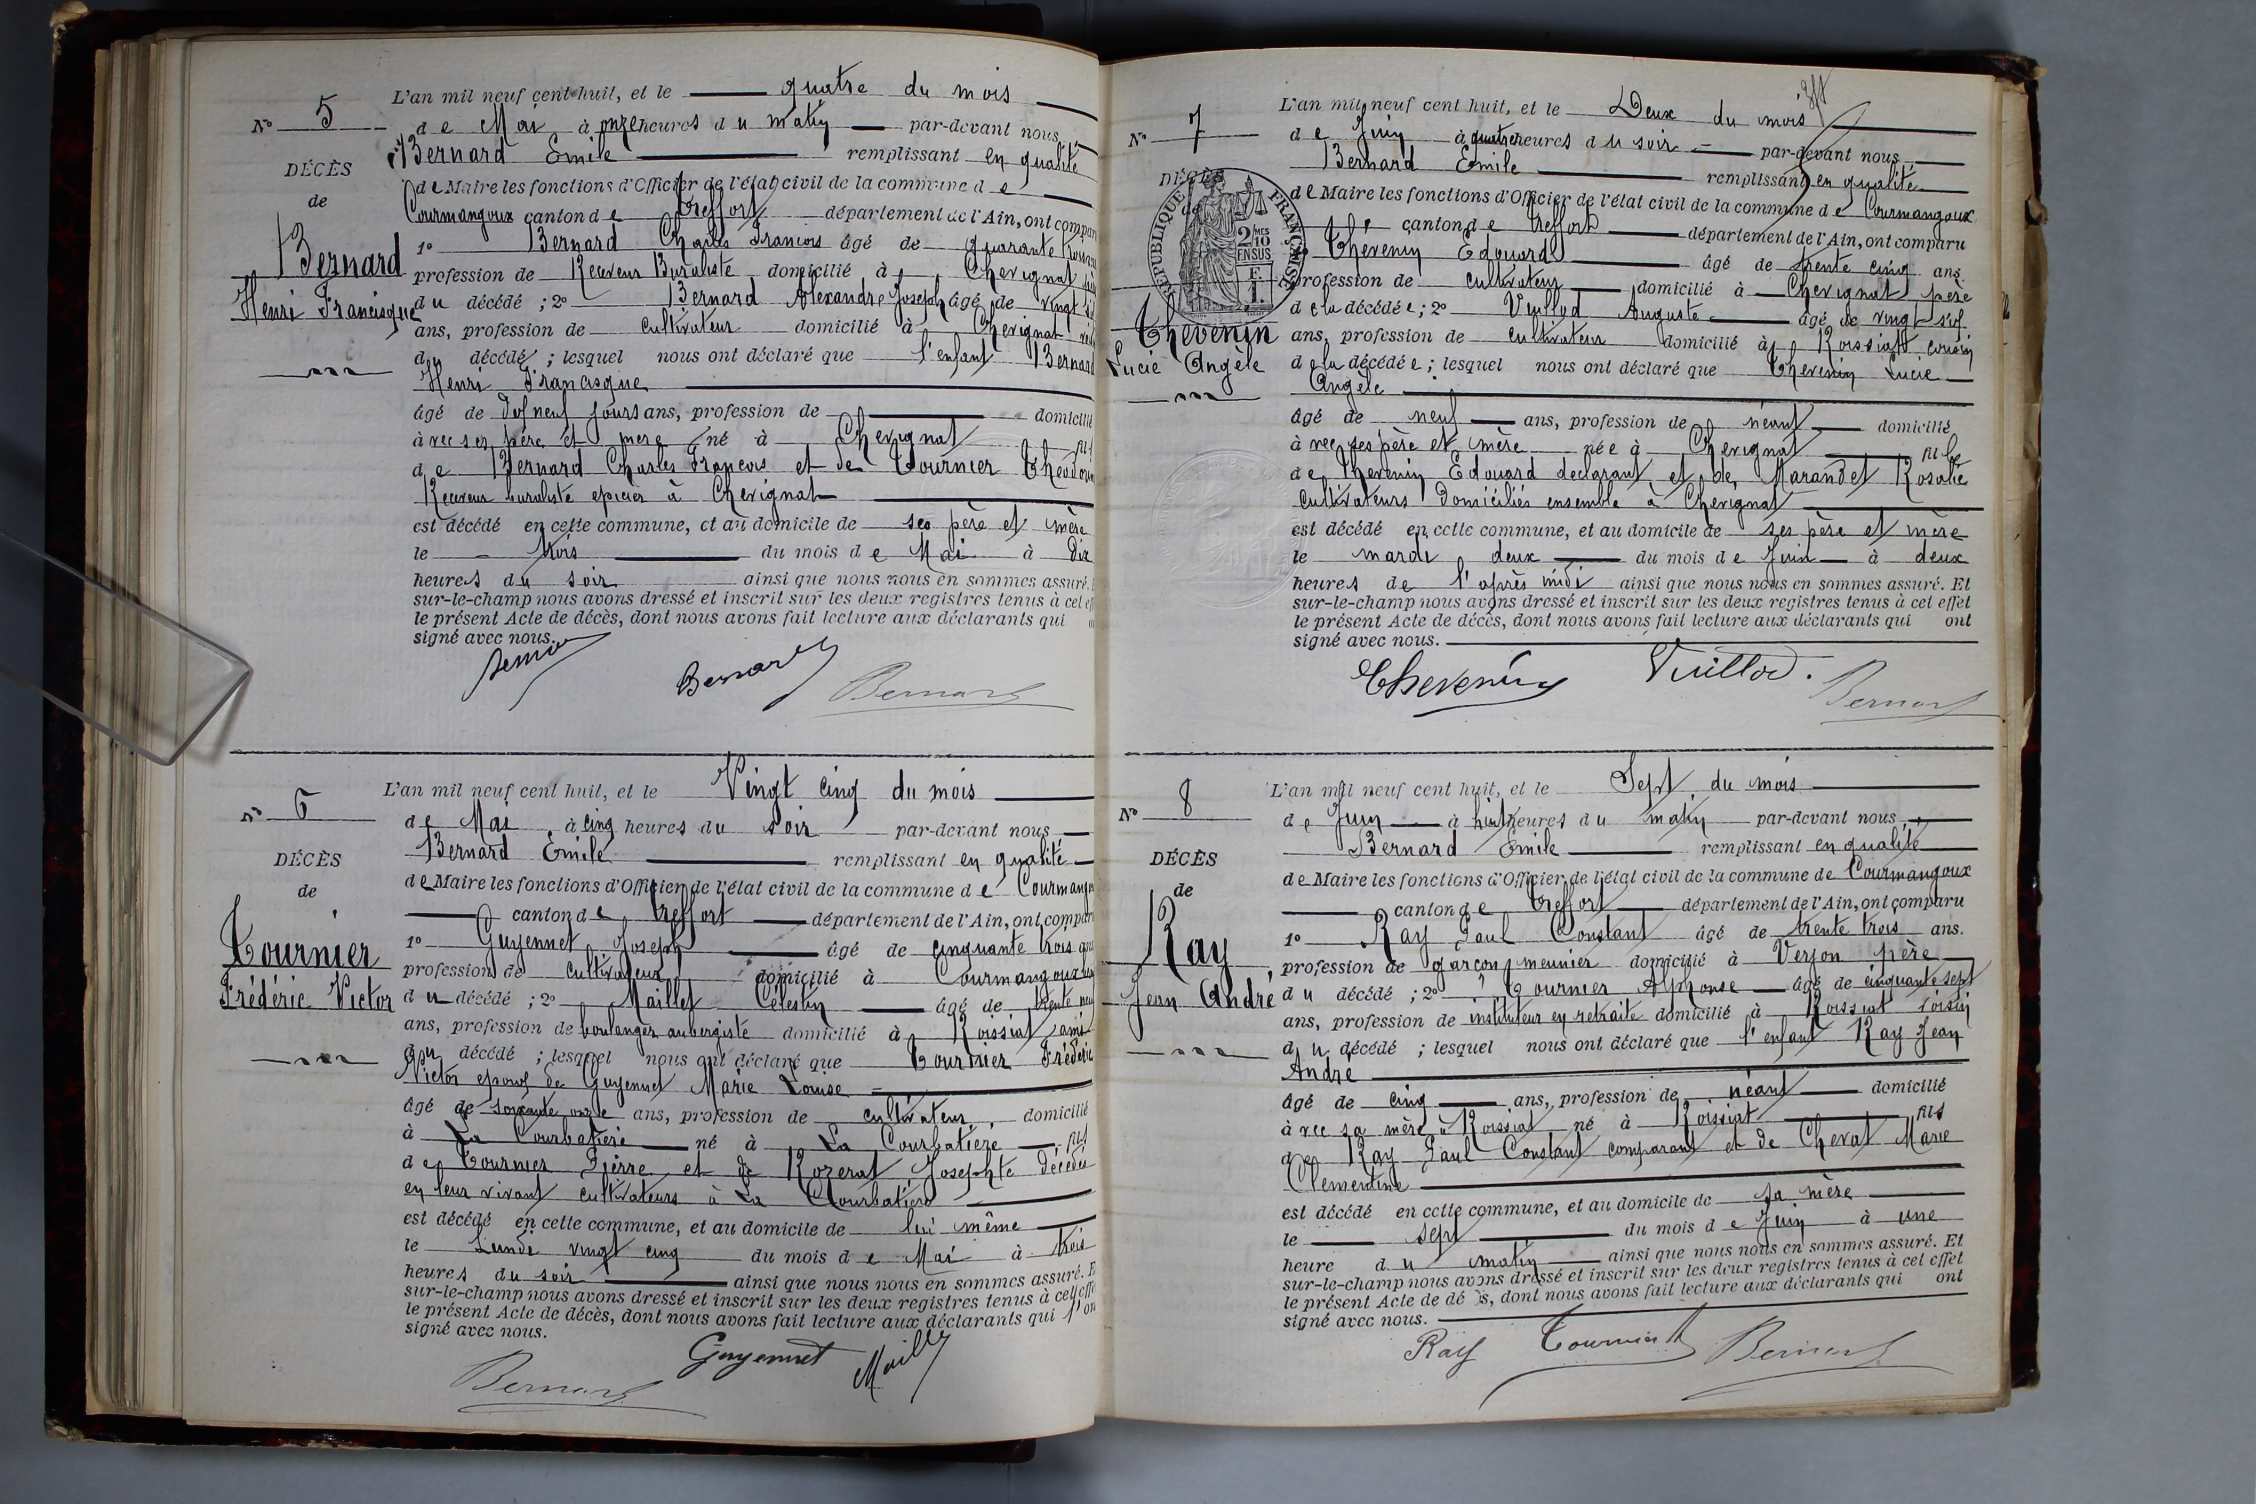 L'an mil neuf cent huit, et le quatre du mois
N° 5
de Mai à onze heures du matin par-devant nous
Bernard Emile remplissant en qualité
DÉCÈS
de Maire les fonctions d'Officier de l'état civil de la commune de
de
Courmangoux canton de Treffort département de l'Ain, ont compar
1° Bernard Charles François âgé de quarante
Bernard
profession de Receveur Buraliste domicilié à Chevignat
Henri Francisque
du décédé ; 2° Bernard Alexandre Joseph âgé de vingt
ans, profession de cultivateur domicilié à Chevignat
du décédé ; lesquel nous ont déclaré que l'enfant Bernard
Henri Francisque
âgé de dix neuf jours ans, profession de domicilié
avec ses père et mère né à Chevignat fils
de Bernard Charles François et de Tournier
Receveur buraliste epicier à Chevignat
est décédé en cette commune, et au domicile de ses père et mère
le trois du mois de Mai à dix
heures du soir ainsi que nous nous en sommes assuré.
sur-le-champ nous avons dressé et inscrit sur les deux registres tenus à cet eff
le présent Acte de décès, dont nous avons fait lecture aux déclarants qui
signé avec nous.
Bernard
Bernard
L'an mil neuf cent huit, et le Vingt cinq du mois
N° 6
de Mai à cinq heures du soir par-devant nous
Bernard Emile remplissant en qualité
DÉCÈS
de Maire les fonctions d'Officier de l'état civil de la commune de Courmangou
de
canton de Treffort département de l'Ain, ont compar
1° Guyennet Joseph âgé de cinquante trois ans
Tournier
profession de cultivateur domicilié à Courmangoux
Frédéric Victor
du décédé ; 2° Maillet Célestin âgé de trente neuf
ans, profession de boulanger aubergiste domicilié à Roissiat ami
du décédé ; lesquel nous ont déclaré que Tournier Frédéric
Victor epoux de Guyennet Marie Louise
âgé de soixante onze ans, profession de cultivateur domicilié
à La Courbatière né à La Courbatière fils
de Tournier Pierre et de Rozerat Josephte décédés
en leur vivant cultivateurs à La Courbatière
est décédé en cette commune, et au domicile de lui même
le Lundi vingt cinq du mois de Mai à trois
heures du soir ainsi que nous nous en sommes assuré. E
sur-le-champ nous avons dressé et inscrit sur les deux registres tenus à cet effe
le présent Acte de décès, dont nous avons fait lecture aux déclarants qui ont
signé avec nous.
Bernard Guyennet Maillet
L'an mil neuf cent huit, et le Deux du mois
N° 7
de Juin à quatre heures du soir par-devant nous
Bernard Emile remplissant en qualité
DÉCÈS
de Maire les fonctions d'Officier de l'état civil de la commune de Courmangoux
de
RÉPUBLIQUE FRANÇAISE
2 MES
10
EN SUS
F
1.
canton de Treffort département de l'Ain, ont comparu
Thévenin Edouard âgé de trente cinq ans
profession de cultivateur domicilié à Chevignat père
de la décédée ; 2° Vuillod Auguste âgé de vingt sept
Thévenin
ans, profession de cultivateur domicilié à Roissiat cousin
Lucie Angèle
de la décédée ; lesquel nous ont déclaré que Thévenin Lucie
Angèle
âgé de neuf ans, profession de néant domicilié
avec ses père et mère née à Chevignat fille
de Thévenin Edouard déclarant et de Marandet Rosalie
cultivateurs domiciliés ensemble à Chevignat
est décédé en cette commune, et au domicile de ses père et mère
le mardi deux du mois de Juin à deux
heures de l'après midi ainsi que nous nous en sommes assuré. Et
sur-le-champ nous avons dressé et inscrit sur les deux registres tenus à cet effet
le présent Acte de décès, dont nous avons fait lecture aux déclarants qui ont
signé avec nous.
Thevenin Vuillod. Bernard
L'an mil neuf cent huit, et le Sept du mois
N° 8
de Juin à huit heures du matin par-devant nous
Bernard Emile remplissant en qualité
DÉCÈS
de Maire les fonctions d'Officier de l'état civil de la commune de Courmangoux
de
canton de Treffort département de l'Ain, ont comparu
1° Ray Paul Constant âgé de trente trois ans.
Ray
profession de garçon meunier domicilié à Verjon père
Jean André
du décédé ; 2° Tournier Alphonse âgé de cinquante sept
ans, profession de instituteur en retraite domicilié à Roissiat voisin
du décédé ; lesquel nous ont déclaré que l'enfant Ray Jean
André
âgé de cinq ans, profession de néant domicilié
avec sa mère à Roissiat né à Roissiat fils
de Ray Paul Constant comparant et de Chevat Marie
Clementine
est décédé en cette commune, et au domicile de sa mère
le sept du mois de Juin à une
heure du matin ainsi que nous nous en sommes assuré. Et
sur-le-champ nous avons dressé et inscrit sur les deux registres tenus à cet effet
le présent Acte de décès, dont nous avons fait lecture aux déclarants qui ont
signé avec nous.
Ray Tournier A Bernard